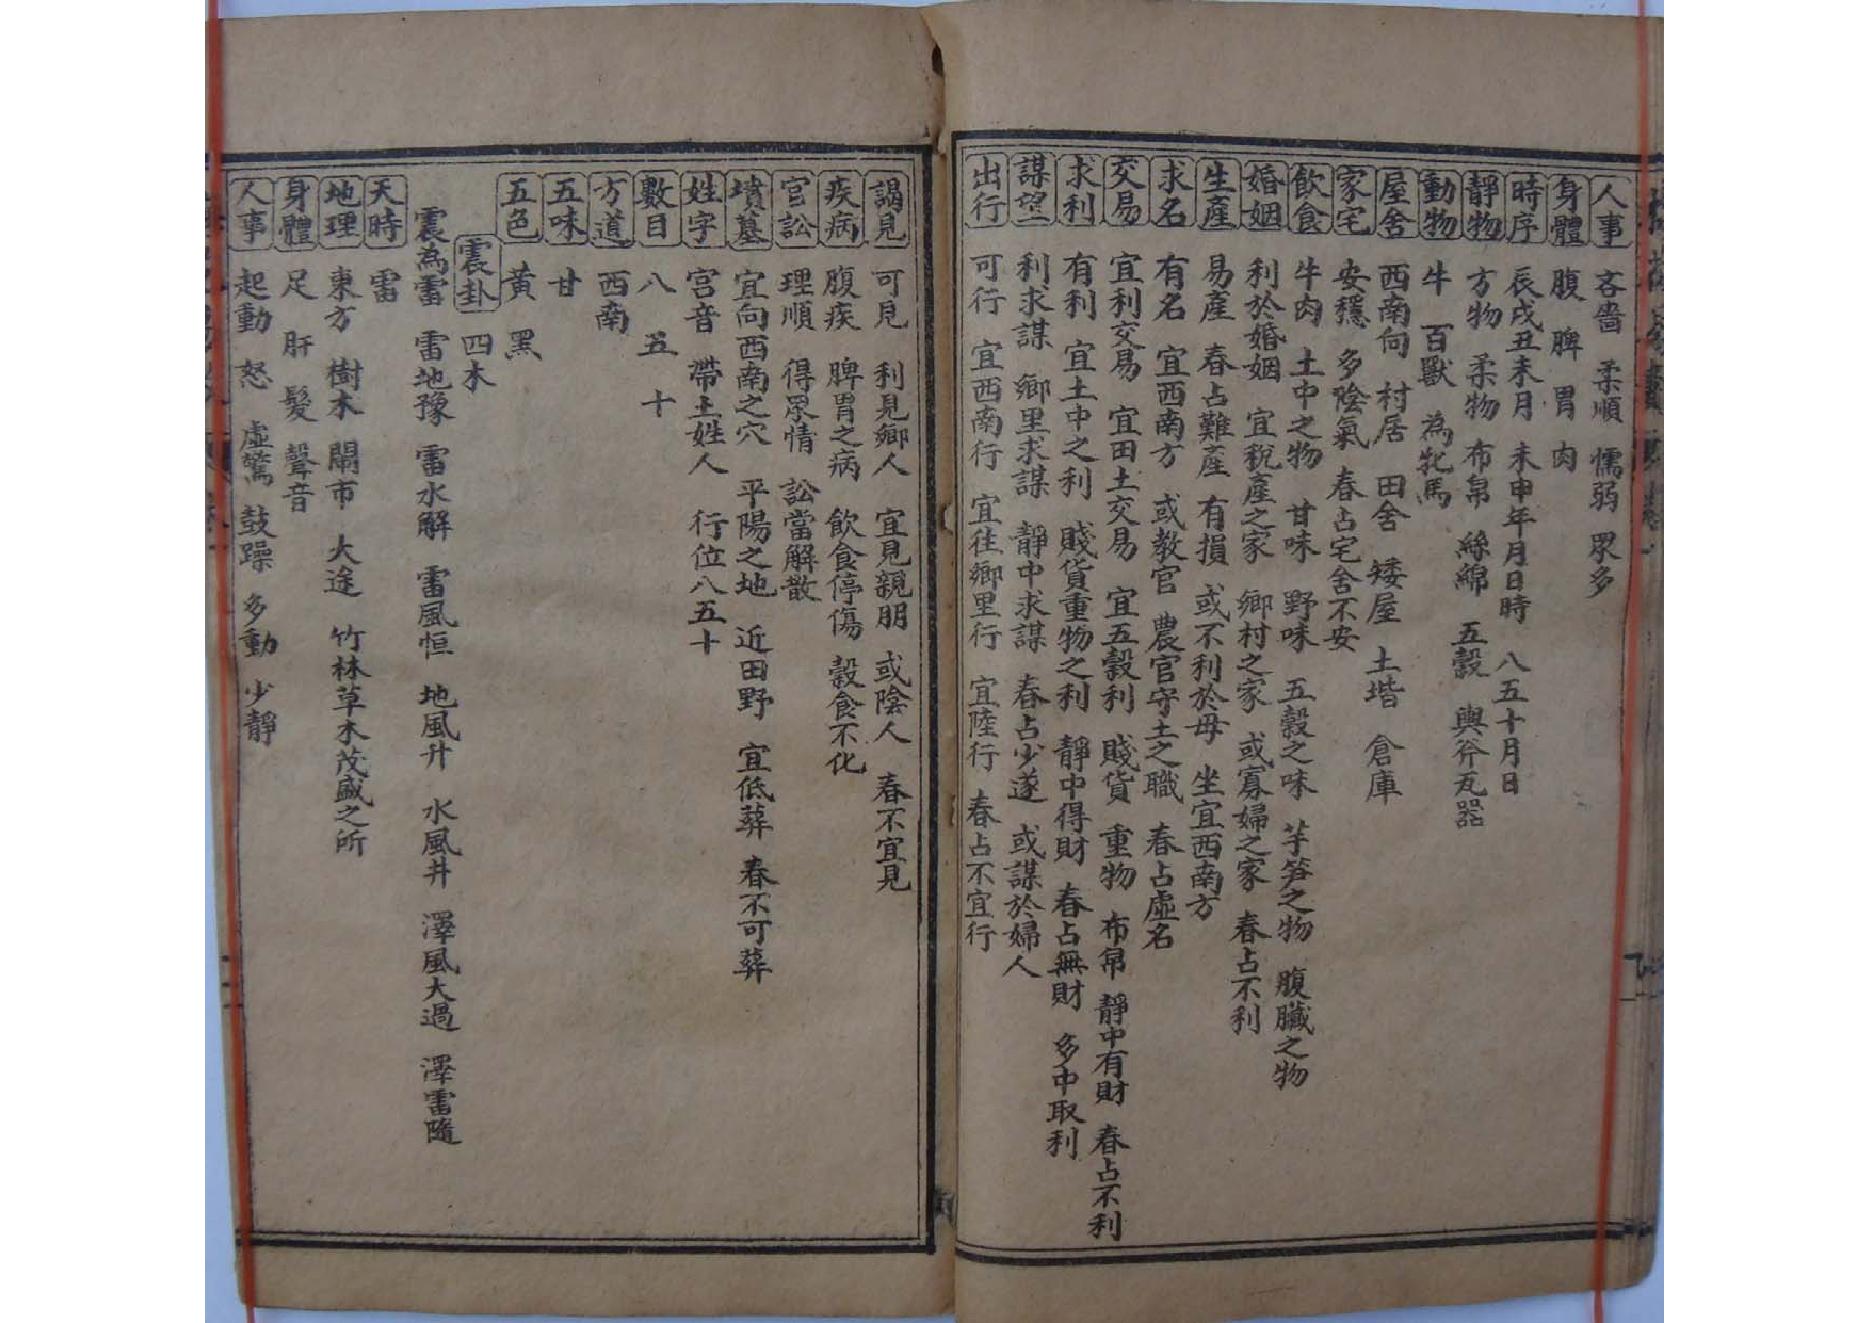 人事 吝嗇 柔順 懦弱 眾多
身體 腹 脾 胃 肉
時序 辰戌丑未月 未申年月日時 八五十月日
靜物 方物 柔物 布帛 絲綿 五穀 輿斧瓦器
動物 牛 百獸 為牝馬
屋舍 西南向 村居 田舍 矮屋 土堦 倉庫
家宅 安穩 多陰氣 春占宅舍不安
飲食 牛肉 土中之物 甘味 野味 五穀之味 芋笋之物 腹臟之物
婚姻 利於婚姻 宜稅產之家 鄉村之家 或寡婦之家 春占不利
生產 易產 春占難產 有損 或不利於母 坐宜西南方
求名 有名 宜西南方 或教官 農官守土之職 春占虛名
交易 宜利交易 宜田土交易 宜五穀利 賤貨 重物 布帛 靜中有財 春占不利
求利 有利 宜土中之利 賤貨重物之利 靜中得財 春占無財 多中取利
謀望 利求謀 鄉里求謀 靜中求謀 春占少遂 或謀於婦人
出行 可行 宜西南行 宜往鄉里行 宜陸行 春占不宜行
謁見 可見 利見鄉人 宜見親朋 或陰人 春不宜見
疾病 腹疾 脾胃之病 飲食停傷 穀食不化
官訟 理順 得眾情 訟當解散
墳墓 宜向西南之穴 平陽之地 近田野 宜低葬 春不可葬
姓字 宮音 帶土姓人 行位八五十
數目 八 五 十
方道 西南
五味 甘
五色 黃 黑
震卦 四木
震為雷 雷地豫 雷水解 雷風恒 地風升 水風井 澤風大過 澤雷隨
天時 雷
地理 東方 樹木 鬧市 大途 竹林草木茂盛之所
身體 足 肝 髮 聲音
人事 起動 怒 虛驚 鼓躁 多動 少靜